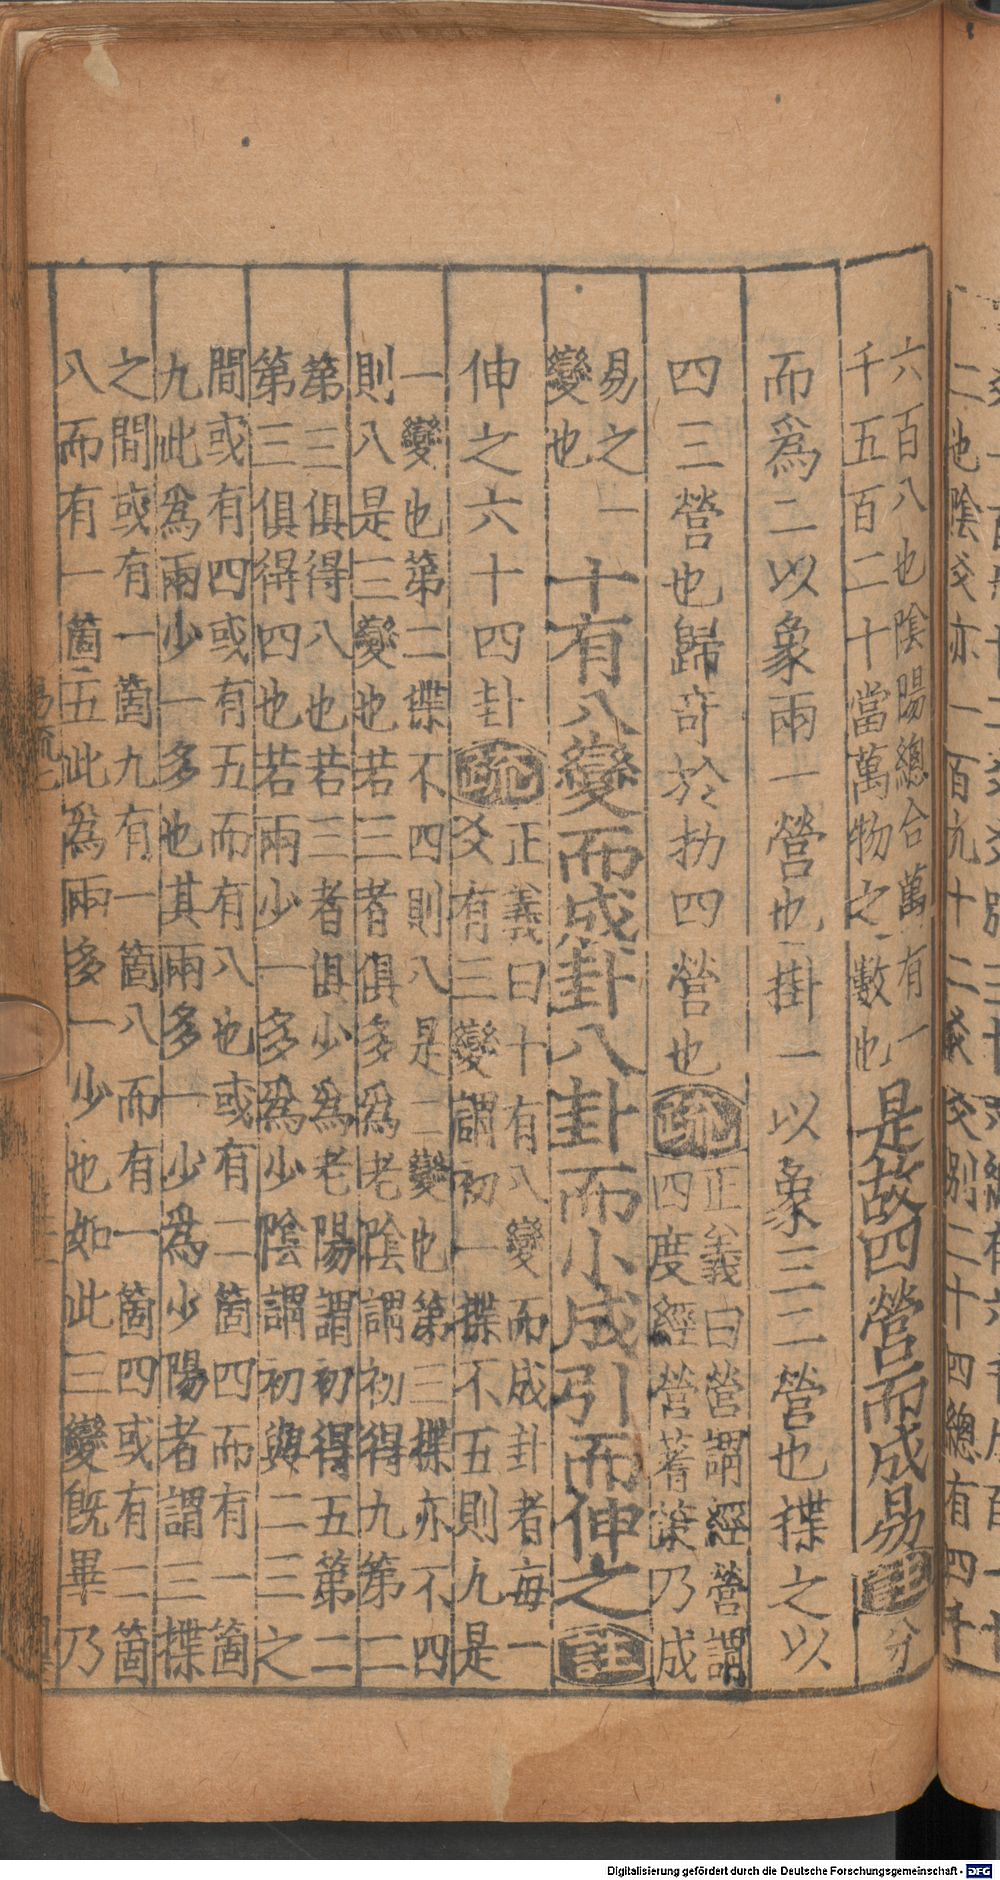 六百八也陰陽總合萬有一
千五百二十當萬物之數也
是故四營而成易註分
而為二以象兩一營也掛一以象三二營也揲之以
四三營也歸奇於扐四營也疏
正義曰營謂經營謂
四度經營蓍策乃成
易之一
變也
十有八變而成卦八卦而小成引而伸之註
伸之六十四卦疏
正義曰十有八變而成卦者每一
爻有三變謂初一揲不五則九是
一變也第二揲不四則八是二變也第三揲亦不四
則八是三變也若三者俱多為老陰謂初得九第二
第三俱得八也若三者俱少為老陽謂初得五第二
第三俱得四也若兩少一多為少陰謂初與二三之
間或有四或有五而有八也或有二箇四而有一箇
九此為兩少一多也其兩多一少為少陽者謂三揲
之間或有一箇九有一箇八而有一箇四或有二箇
八而有一箇五此為兩多一少也如此三變既畢乃
二也陰爻亦一百九十二爻爻別二十四總有四千
Digitalisierung gefördert durch die Deutsche Forschungsgemeinschaft - DFG